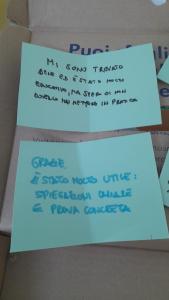 MI SONO TROVATO
BENE ED È STATO MOLTO
EDUCATIVO, MA SPERO DI NON
DOVERLO MAI METTERE IN PRATICA
GRAZIE
È STATO MOLTO UTILE:
SPIEGAZIONI CHIARE
E PROVA CONCRETA